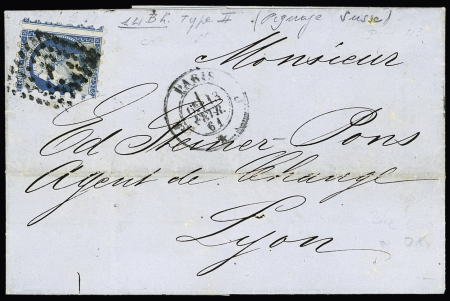 14Bh. Type II (Piquage Susse)
Monsieur
PARIS
13
FEVR.
61
Ed Steiner-Pons
Agent de Change
Lyon